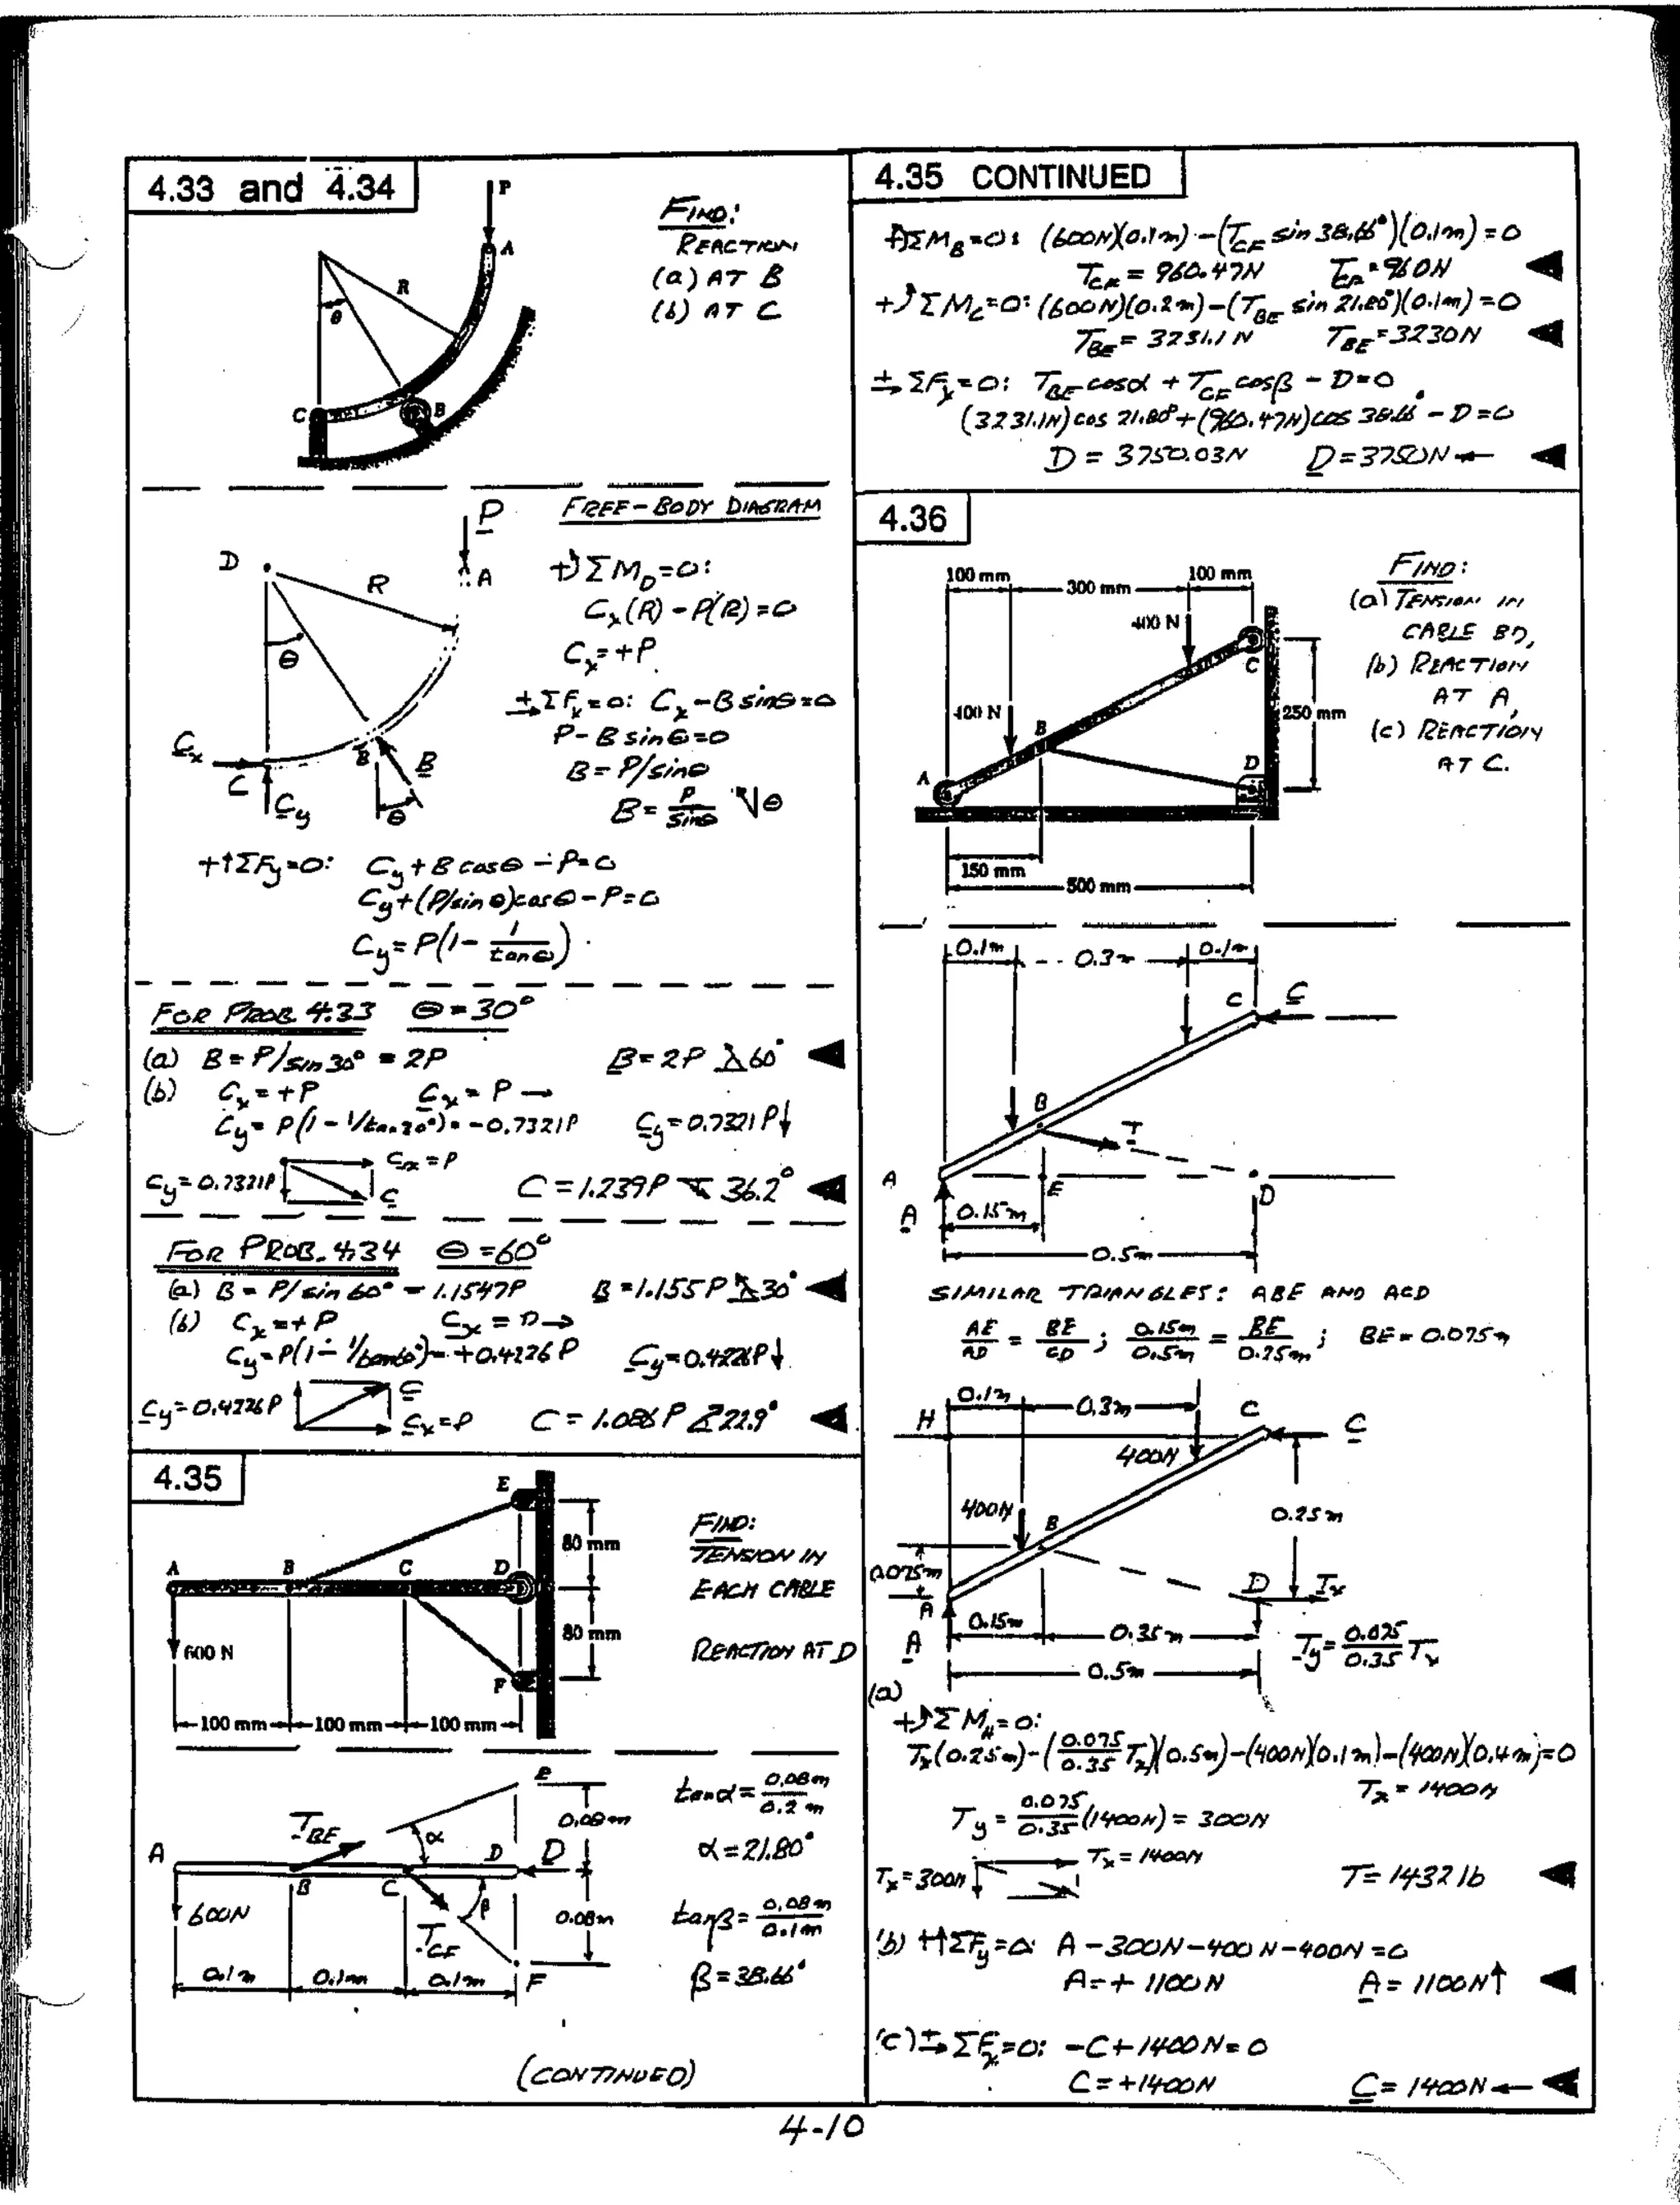 4.33 and 4.34
P
A
R
θ
C
B
FIND:
REACTION
(a) AT B
(b) AT C
FREE-BODY DIAGRAM
P
D
R
A
θ
Cx
C
Cy
B
B
θ
+↺ΣM_D=0:
Cx(R) - P(R) = 0
Cx = +P
+→ΣFx=0: Cx - B sinθ = 0
P - B sinθ = 0
B = P/sinθ
B = P/sinθ θ
+↑ΣFy=0: Cy + B cosθ - P = 0
Cy + (P/sinθ)cosθ - P = 0
Cy = P(1 - 1/tanθ)
FOR PROB. 4.33 θ = 30°
(a) B = P/sin 30° = 2P B = 2P 60°
(b) Cx = +P Cx = P →
Cy = P(1 - 1/tan 30°) = -0.7321P Cy = 0.7321P↓
Cx = P
Cy = 0.7321P C
C = 1.239P 36.2°
FOR PROB. 4.34 θ = 60°
(a) B = P/sin 60° = 1.1547P B = 1.155P 30°
(b) Cx = +P Cx = P →
Cy = P(1 - 1/tan60°) = +0.4226P Cy = 0.4226P↓
C
Cy = 0.4226P Cx = P C = 1.086P 22.9°
4.35
E
80 mm
A B C D
80 mm
600 N
F
100 mm 100 mm 100 mm
FIND:
TENSION IN
EACH CABLE
REACTION AT D
E
0.08m
T_BE
α
A D D
B C
600N β
T_CF 0.08m
0.1m 0.1m 0.1m F
tanα = 0.08m/0.2m
α = 21.80°
tanβ = 0.08m/0.1m
β = 38.66°
(CONTINUED)
4.35 CONTINUED
+↺ΣM_B=0: (600N)(0.1m) - (T_CF sin 38.66°)(0.1m) = 0
T_CF = 960.47N T_CF = 960N
+↺ΣM_C=0: (600N)(0.2m) - (T_BE sin 21.80°)(0.1m) = 0
T_BE = 3231.1N T_BE = 3230N
+→ΣFx=0: T_BE cosα + T_CF cosβ - D = 0
(3231.1N)cos 21.80° + (960.47N)cos 38.66° - D = 0
D = 3750.03N D = 3750N ←
4.36
100 mm 300 mm 100 mm
400 N
C
400 N
B
250 mm
A D
150 mm
500 mm
FIND:
(a) TENSION IN
CABLE BD,
(b) REACTION
AT A,
(c) REACTION
AT C.
0.1m 0.3m 0.1m
C C
B
T
A E D
A 0.15m
0.5m
SIMILAR TRIANGLES: ABE AND ACD
AE/AD = BE/CD ; 0.15m/0.5m = BE/0.25m ; BE = 0.075m
0.1m 0.3m
H C C
400N
400N B 0.25m
0.075m
D Tx
A
A 0.15m 0.35m Ty = 0.075/0.35 Tx
0.5m
(a)
+↺ΣM_H=0:
Tx(0.25m) - (0.075/0.35 Tx)(0.5m) - (400N)(0.1m) - (400N)(0.4m) = 0
Tx = 1400N
Ty = 0.075/0.35 (1400N) = 300N
Tx = 1400N
Tx = 300N T = 1432 lb
(b) +↑ΣFy=0: A - 300N - 400N - 400N = 0
A = + 1100N A = 1100N↑
(c) +→ΣFx=0: -C + 1400N = 0
C = +1400N C = 1400N ←
4-10